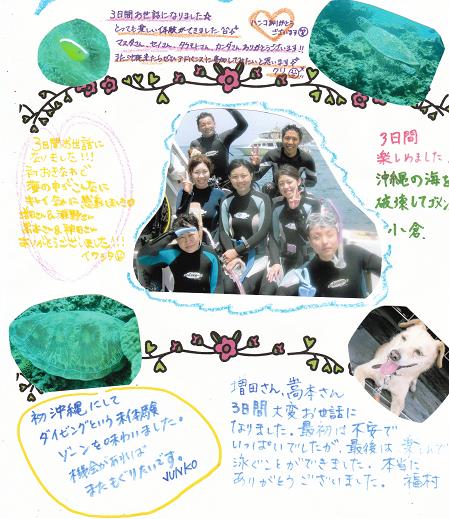 3日間お世話になりました☆
とっても楽しい体験ができました
マスダさん、セイノさん、タカモトさん、カンダさんありがとうございます!!
ハンコありがとう
ございます
3日間お世話に
なりました!!!
初おきなわで
海の中がこんなに
キレイなのに感動しました
ありがとうございました!!!
イワシタ
3日間
楽しめました
沖縄の海を
破壊してゴメン
小倉
初沖縄にして
ダイビングという未体験
ゾーンを味わいました。
機会があれば
またもぐりたいです。
JUNKO
増田さん、嵩本さん
3日間大変お世話に
なりました。最初は不安で
いっぱいでしたが、最後は楽しんで
泳ぐことができました。本当に
ありがとうございました。福村